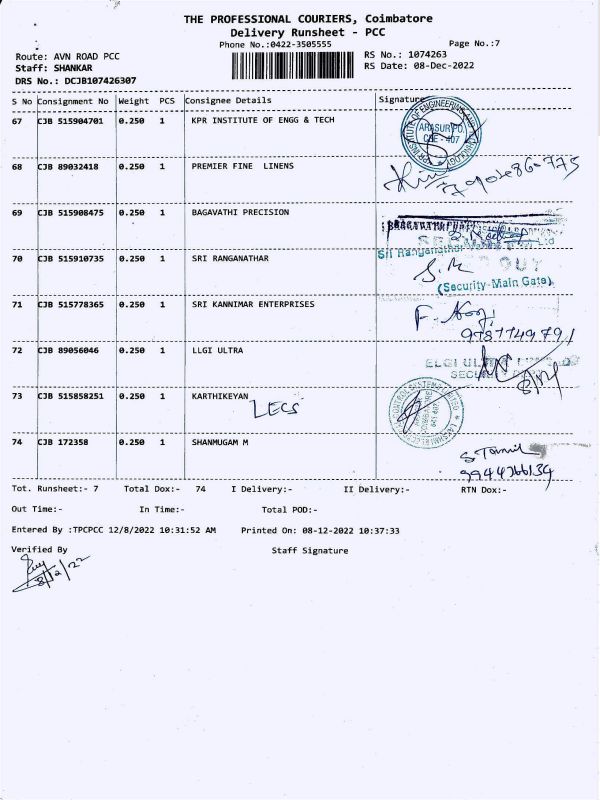 THE PROFESSIONAL COURIERS, Coimbatore
Delivery Runsheet - PCC
Phone No.:0422-3505555
Page No.:7
Route: AVN ROAD PCC
RS No.: 1074263
Staff: SHANKAR
RS Date: 08-Dec-2022
DRS No.: DCJB107426307
S No Consignment No Weight PCS Consignee Details Signature
67 CJB 515904701 0.250 1 KPR INSTITUTE OF ENGG & TECH
ARASUR PO.
CBE - 407
68 CJB 89032418 0.250 1 PREMIER FINE LINENS
69 CJB 515908475 0.250 1 BAGAVATHI PRECISION
70 CJB 515910735 0.250 1 SRI RANGANATHAR
(Security-Main Gate)
71 CJB 515778365 0.250 1 SRI KANNIMAR ENTERPRISES
72 CJB 89056046 0.250 1 LLGI ULTRA
73 CJB 515858251 0.250 1 KARTHIKEYAN
LECS
74 CJB 172358 0.250 1 SHANMUGAM M
Tot. Runsheet:- 7 Total Dox:- 74 I Delivery:- II Delivery:- RTN Dox:-
Out Time:- In Time:- Total POD:-
Entered By :TPCPCC 12/8/2022 10:31:52 AM Printed On: 08-12-2022 10:37:33
Verified By Staff Signature
8/12/22